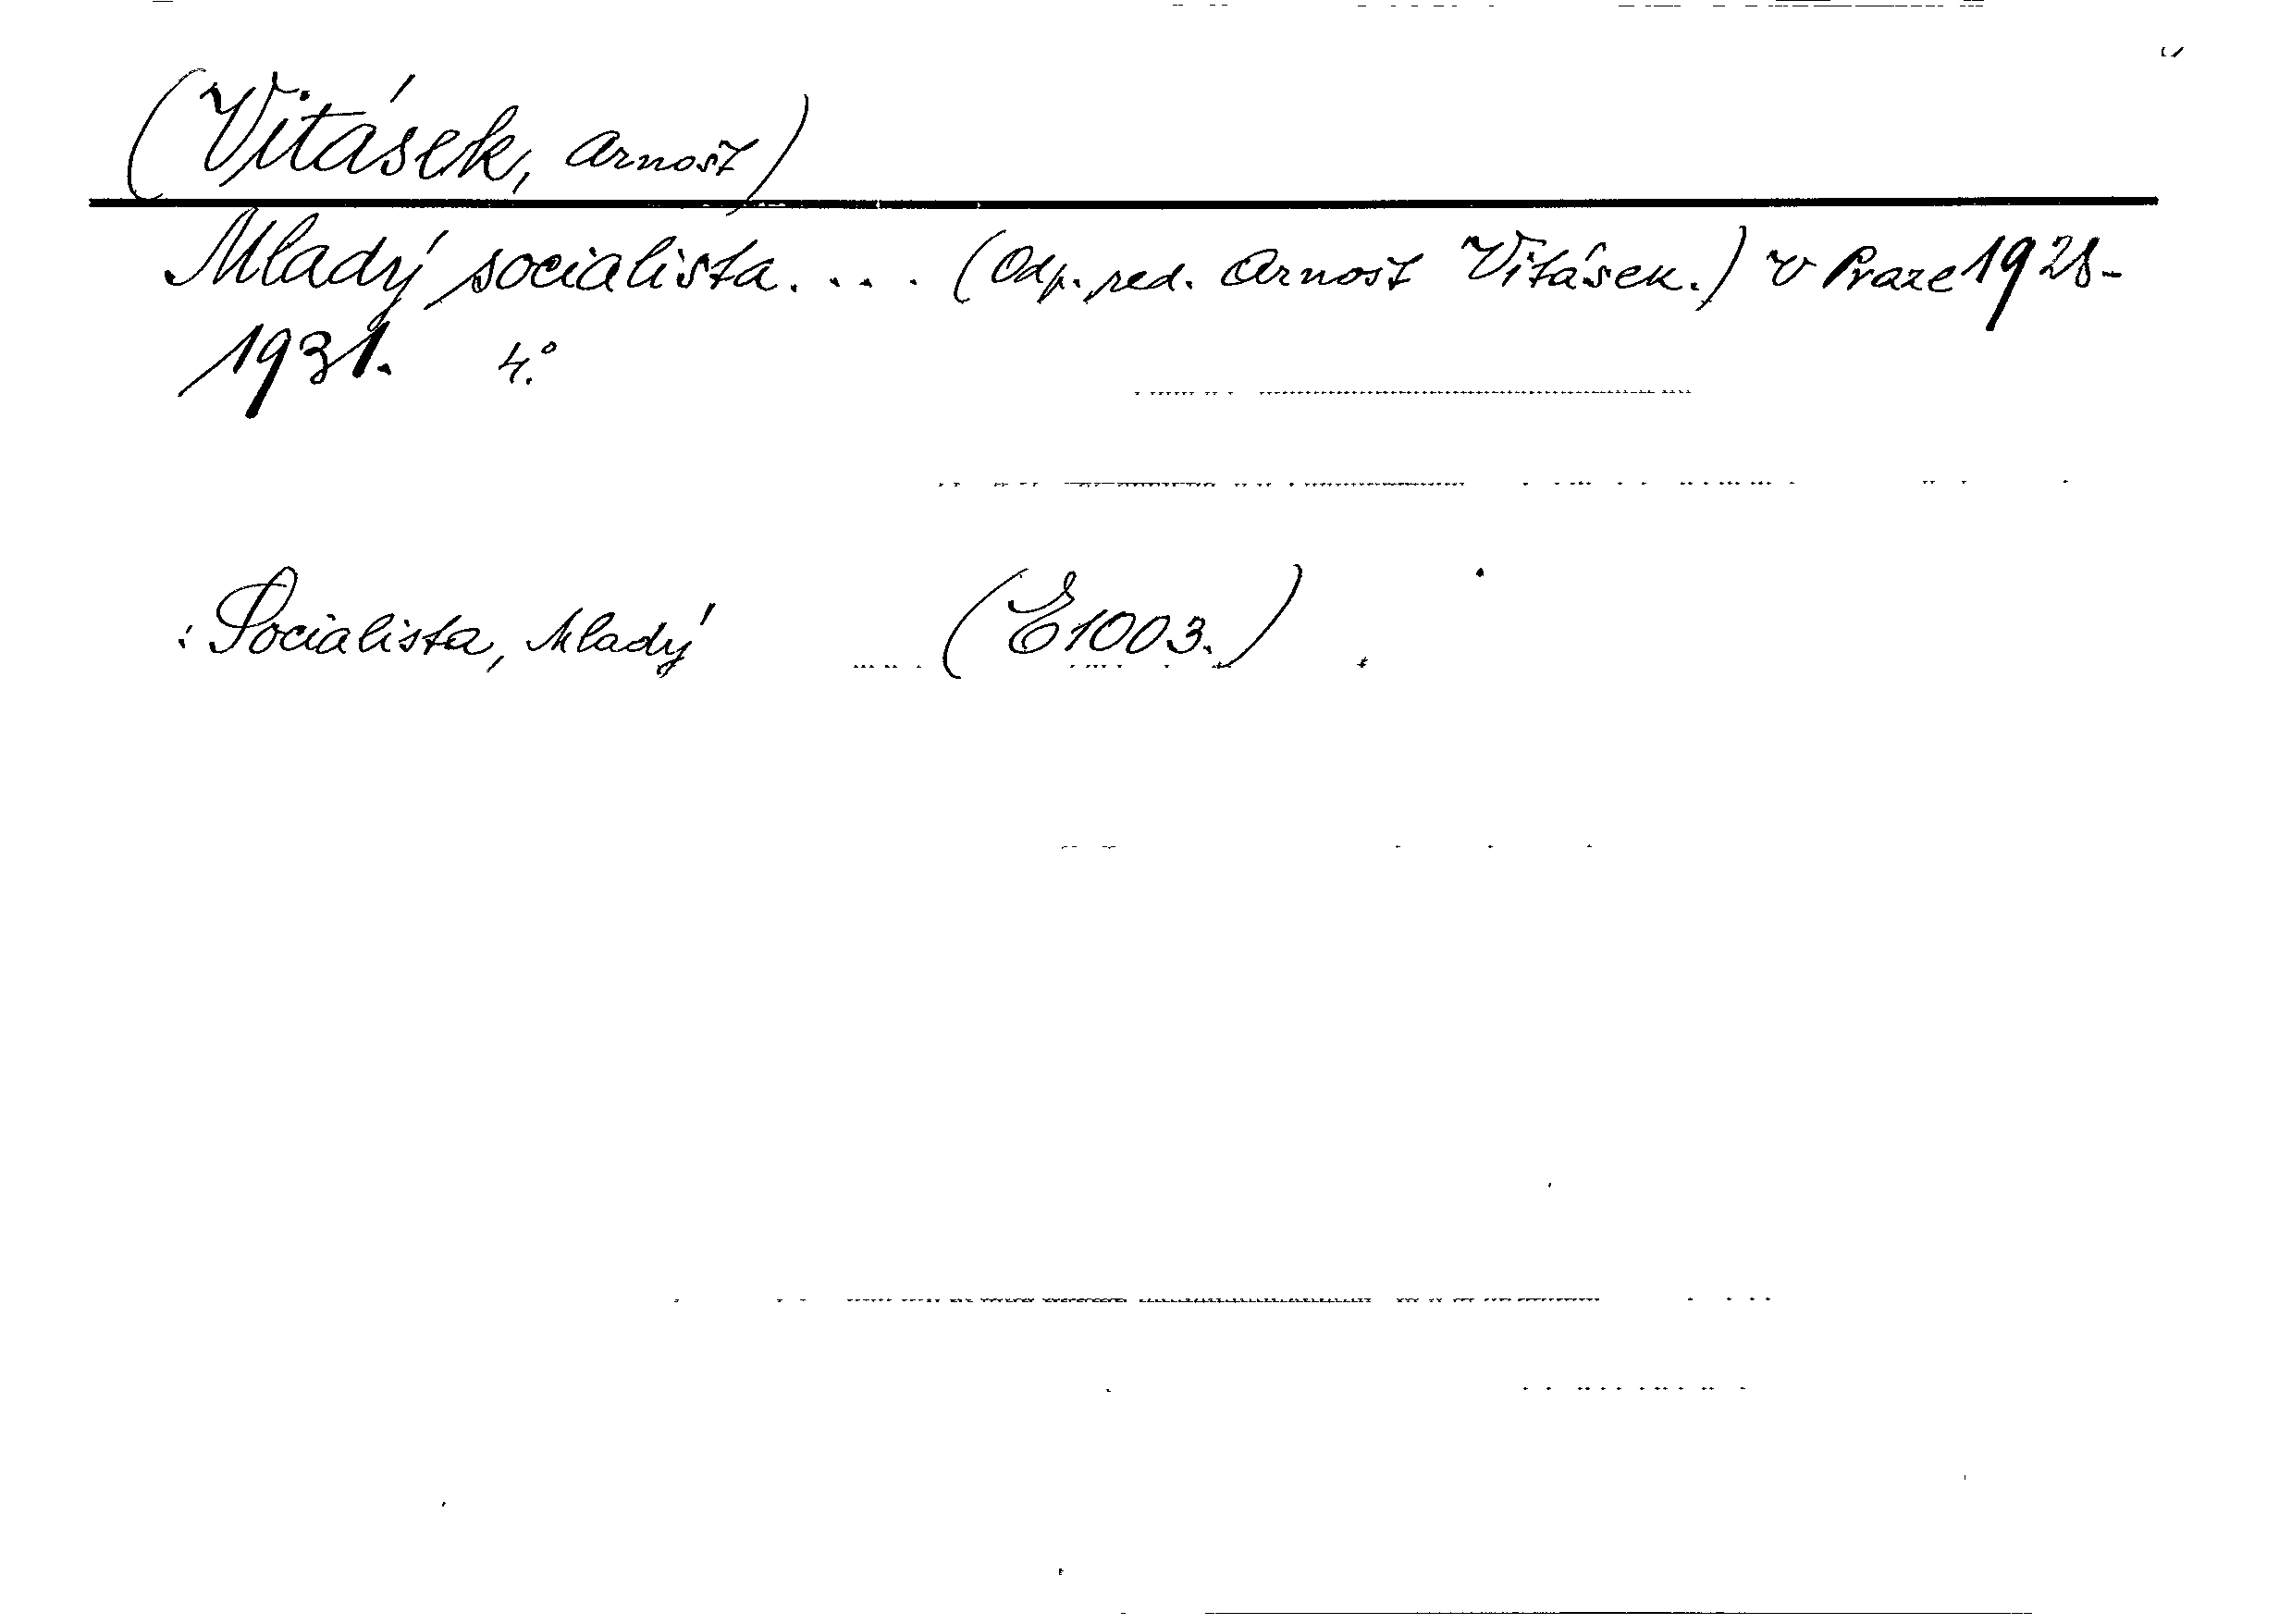 (Vitásek, Arnošt)
Mladý socialista. . . . (Odp. red. Arnošt Vitásek.) V Praze 1928-
1931. 4.°
: Socialista, Mladý (E1003.)